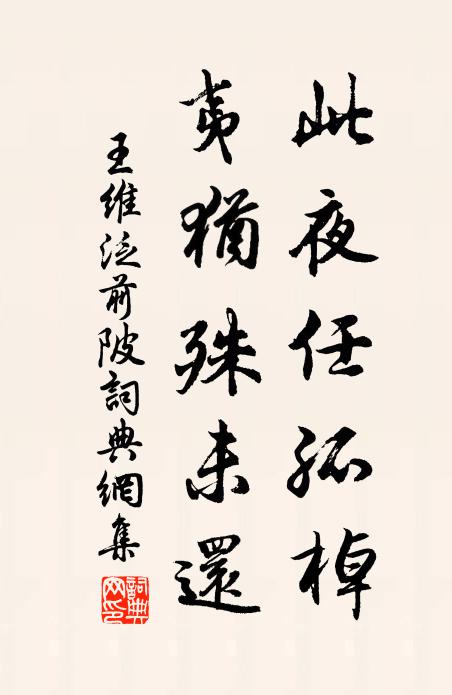 此夜任孤棹
夷猶殊未還
王維泛前陂詞典網集
詞典网印